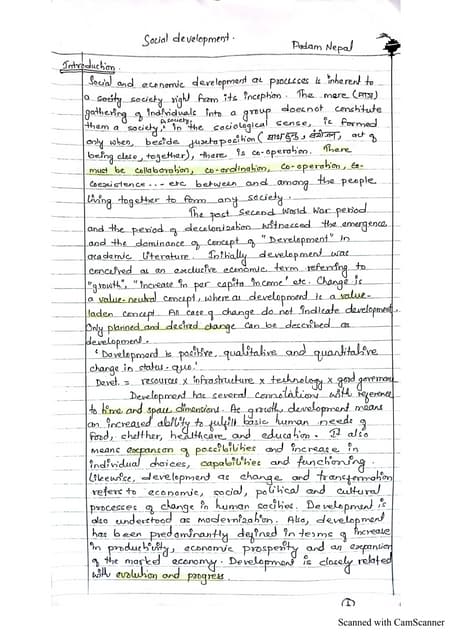 Social development.
Padam Nepal
Introduction.
Social and economic development as processes is inherent to
a socity society right from its inception. The mere (मात्र)
gathering of individuals into a group doesnot constitute
them a society. A society, in the sociological sense, is formed
only when, beside juxtaposition ( act of
being close, together), there is co-operation. There
must be collaboration, co-ordination, co-operation, co-
coexistence --- etc between and among the people
living together to form any society.
The post Second World War period
and the period of decolonization witnessed the emergence
and the dominance of concept of "Development" in
academic literature. Initially development was
conceived as an exclusive economic term referring to
"growth", "increase in per capita income" etc. Change is
a value-neutral concept, where as development is a value-
laden concept. All case of change do not indicate development.
Only planned and desired change can be described as
development.
'Development is positive, qualitative and quantitative
change in status-quo.'
Devel. = resources x infrastructure x technology x good governance
Development has several connotations with reference
to time and space dimensions. As growth, development means
an increased ability to fulfill basic human needs of
food, shelther, healthcare and education. It also
means expansion of possibilities and increase in
individual choices, capabilities and functioning.
Likewise, development as change and transformation
refers to economic, social, political and cultural
processes of change in human socities. Development is
also understood as modernization. Also, development
has been predominantly defined in terms of increase
in productivity, economic prosperity and an expansion
of the market economy. Development is closely related
with evolution and progress.
1
Scanned with CamScanner